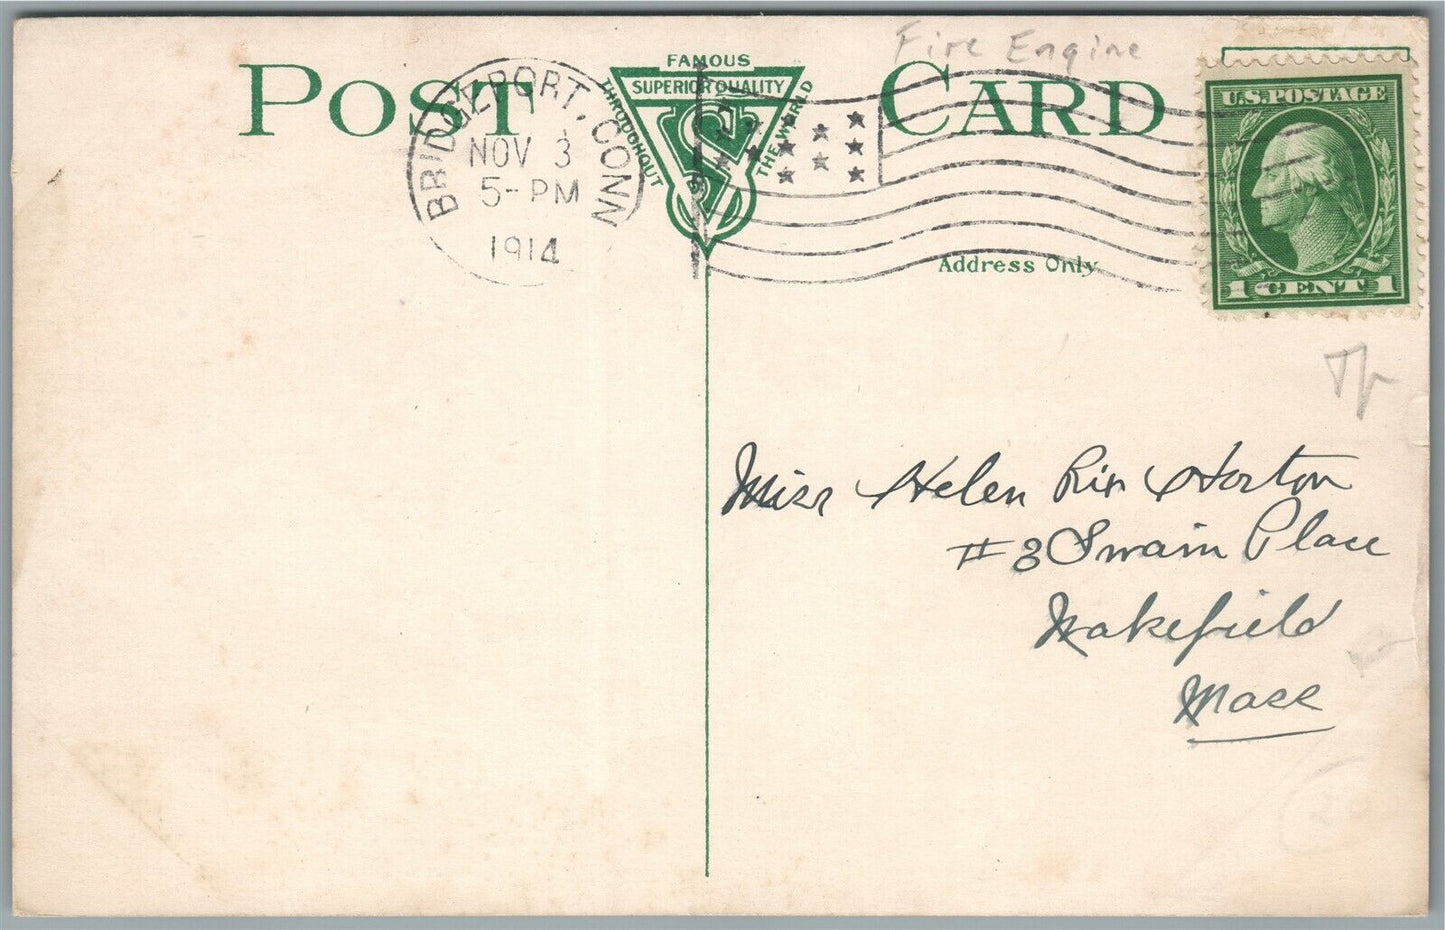 Fire Engine
POST CARD
FAMOUS
SUPERIOR QUALITY
THROUGHOUT THE WORLD
BRIDGEPORT, CONN
NOV 3
5- PM
1914
U.S. POSTAGE
1 CENT 1
Address Only
Miss Helen Rix Horton
#3 Swain Place
Wakefield
Mass